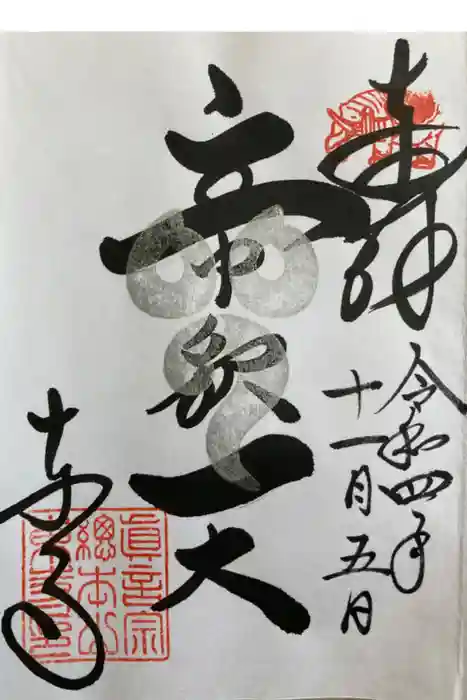 奉拝
令和四年
十一月五日
帝釈天
東寺
真言宗
總本山